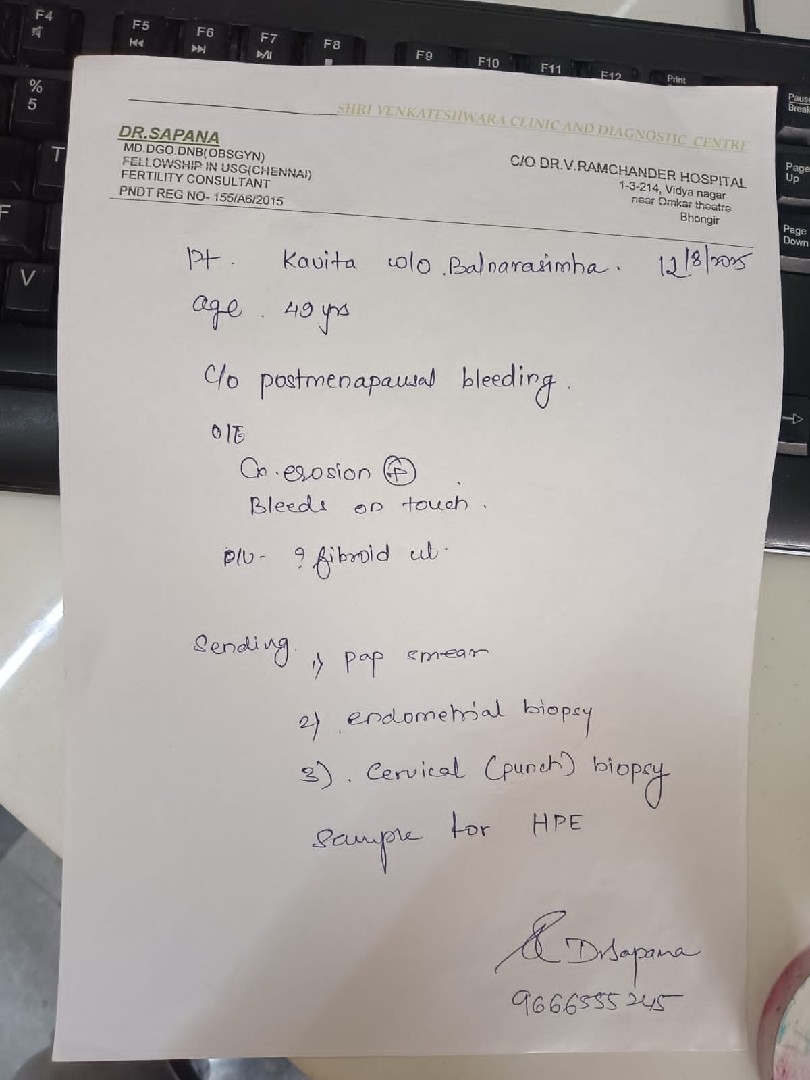 F4
F5
F6
F7
F8
F9
F10
F11
F12
Print
Pause
Break
%
5
T
F
V
Page
Up
Page
Down
SHRI VENKATESHWARA CLINIC AND DIAGNOSTIC CENTRE
DR.SAPANA
MD.DGO.DNB(OBSGYN)
FELLOWSHIP IN USG(CHENNAI)
FERTILITY CONSULTANT
PNDT REG NO- 155/A6/2015
C/O DR.V.RAMCHANDER HOSPITAL
1-3-214, Vidya nagar
near Omkar theatre
Bhongir
Pt. Kavita w/o Balnarasimha. 12/8/2025
age. 49 yrs
C/o postmenapausal bleeding.
O/E
Cx. erosion (+)
Bleeds on touch.
P/V- ? fibroid ut.
Sending 1) pap smear
2) endometrial biopsy
3). Cervical (punch) biopsy
sample for HPE
Dr Sapana
9666555245